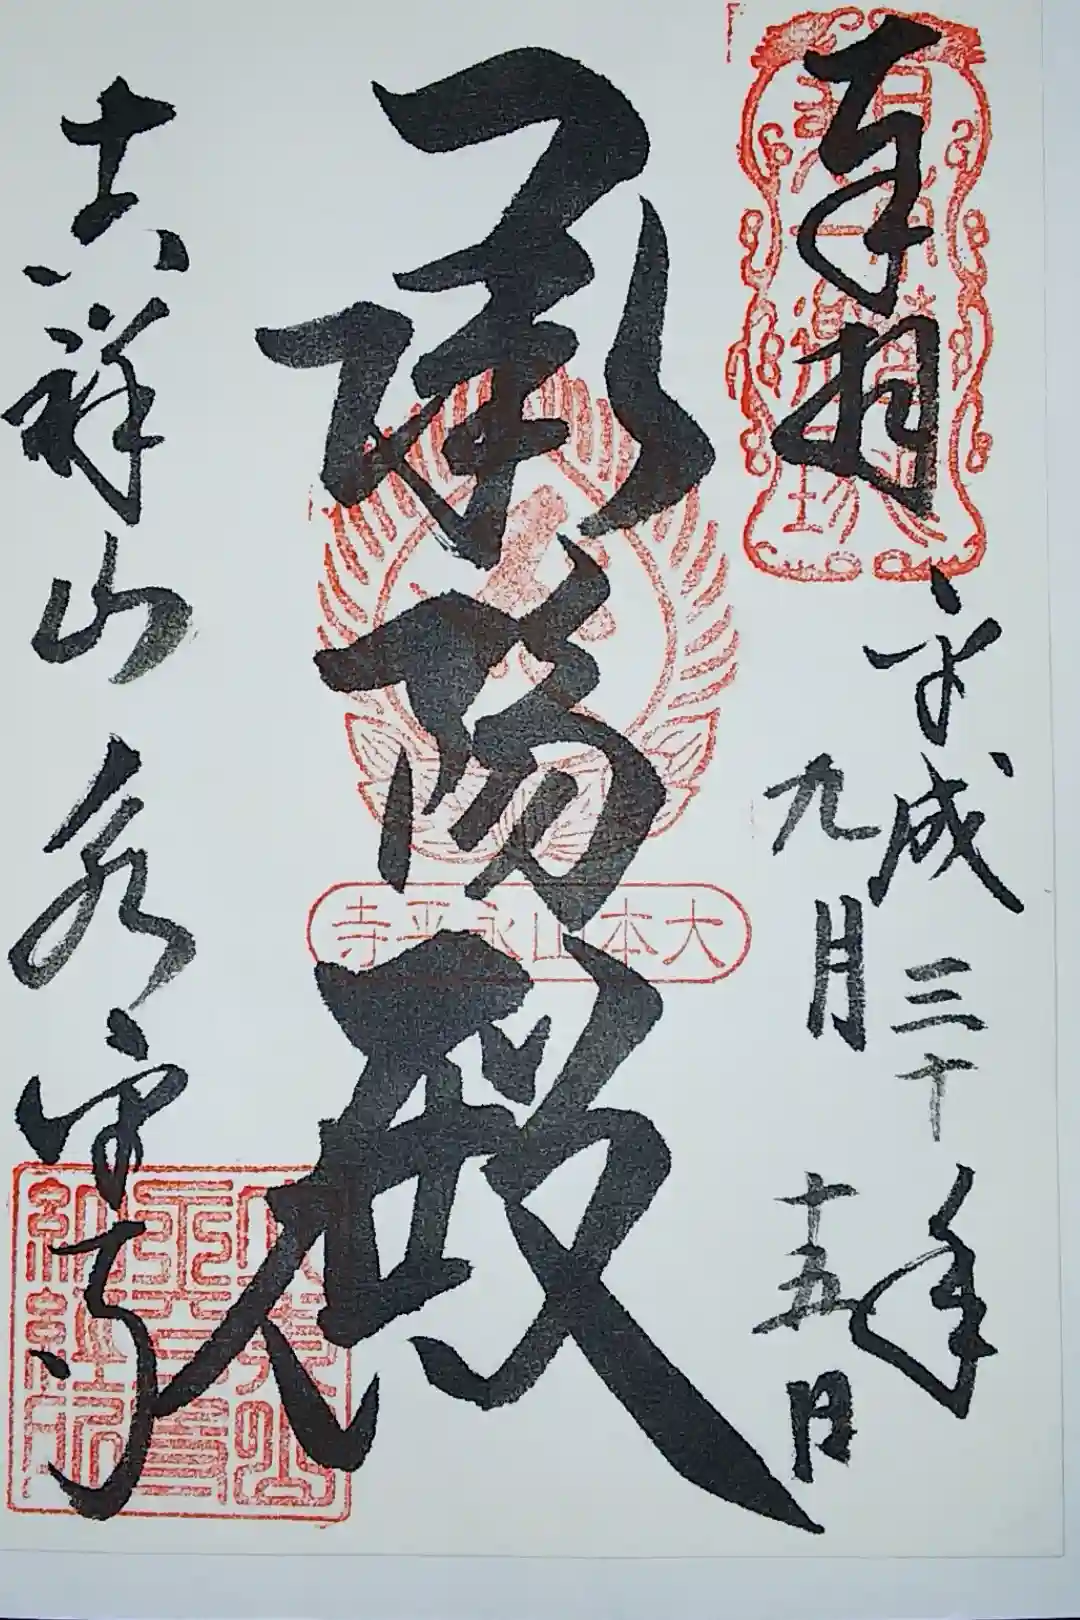 奉拝
平成三十年
九月十五日
承陽殿
大本山永平寺
吉祥山永平寺